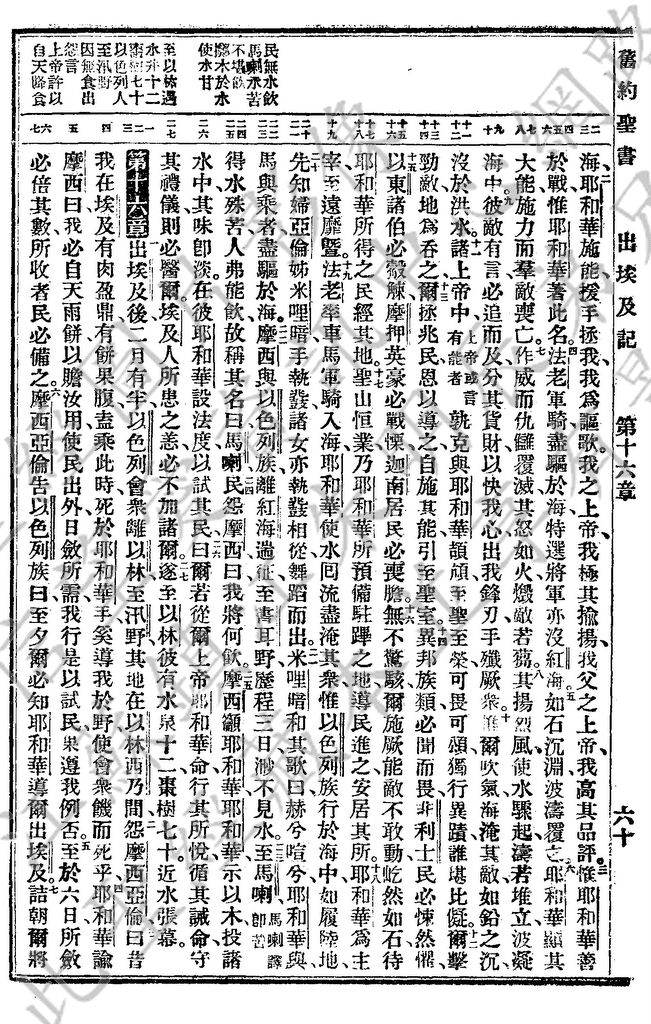 舊約聖書 出埃及記 第十六章 六十
海、耶和華施能援手拯我、我爲謳歌、我之上帝、我極其揄揚、我父之上帝、我高其品評、惟耶和華善
於戰、惟耶和華著此名、法老軍騎盡驅於海、特選將軍亦沒紅海、如石沉淵、波濤覆之、耶和華顯其
大能、施力而羣敵喪亡、作威而仇讎覆滅、其怒如火、燬敵若芻、其揚烈風、使水驟起、濤若堆立、波凝
海中、彼敵有言、必追而及、分其貨財、以快我心、出我鋒刃、手殲厥衆、惟爾吹氣、海淹其敵、如鉛之沉
沒於洪水、諸上帝中 上帝或言有能者 孰克與耶和華頡頏、至聖至榮、可畏可頌、獨行異蹟、誰堪比儗、爾擊
勁敵、地爲呑之、爾拯兆民、恩以導之、自施其能、引至聖室、異邦族類、必聞而畏、非利士民、必悚然懼、
以東諸伯必觳觫、摩押英豪必戰慄、迦南居民、必喪膽、無不驚駭、爾施厥能、敵不敢動、屹然如石、待
耶和華所得之民經其地、聖山恒業、乃耶和華所預備駐蹕之地、導民進之、安居其所、耶和華爲主
宰、至遠靡曁、法老率車馬軍騎入海、耶和華使水回流、盡淹其衆、惟以色列族行於海中、如履陸地、
先知婦亞倫姊米哩暗手執鼗、諸女亦執鼗相從、舞蹈而出、米哩暗和其歌曰、赫兮喧兮、耶和華與
馬與乘者、盡驅於海、摩西與以色列族離紅海、遄征至書耳野、歷程三日、渺不見水、至馬喇、馬喇譯卽苦
得水殊苦、人弗能飲、故稱其名曰馬喇、民怨摩西曰、我將何飲、摩西籲耶和華、耶和華示以木、投諸
水中、其味卽淡、在彼耶和華設法度、以試其民、曰、爾若從爾上帝耶和華命、行其所悅、循其誡命、守
其禮儀、則必醫爾、埃及人所患之恙、必不加諸爾、遂至以林、彼有水泉十二、棗樹七十、近水張幕、
第十六章 出埃及後、二月有半、以色列會衆離以林、至汛野、其地在以林西乃間、怨摩西亞倫曰、昔
我在埃及、有肉盈鼎、有餅果腹、盍乘此時死於耶和華手、奚導我於野、使會衆饑而死乎、耶和華諭
摩西曰、我必自天雨餅、以贍汝用、使民出外、日斂所需、我行是以試民、果遵我例否、至於六日、所斂
必倍其數、所收者民必備之、摩西亞倫吿以色列族曰、至夕爾必知耶和華導爾出埃及、詰朝爾將
民無水飲
馬喇水苦
不堪飲
擲木於水
使水甘
至以林遇
水井十二
棗樹七十
以色列人
至汛野
因無食出
怨言
上帝許以
自天降食